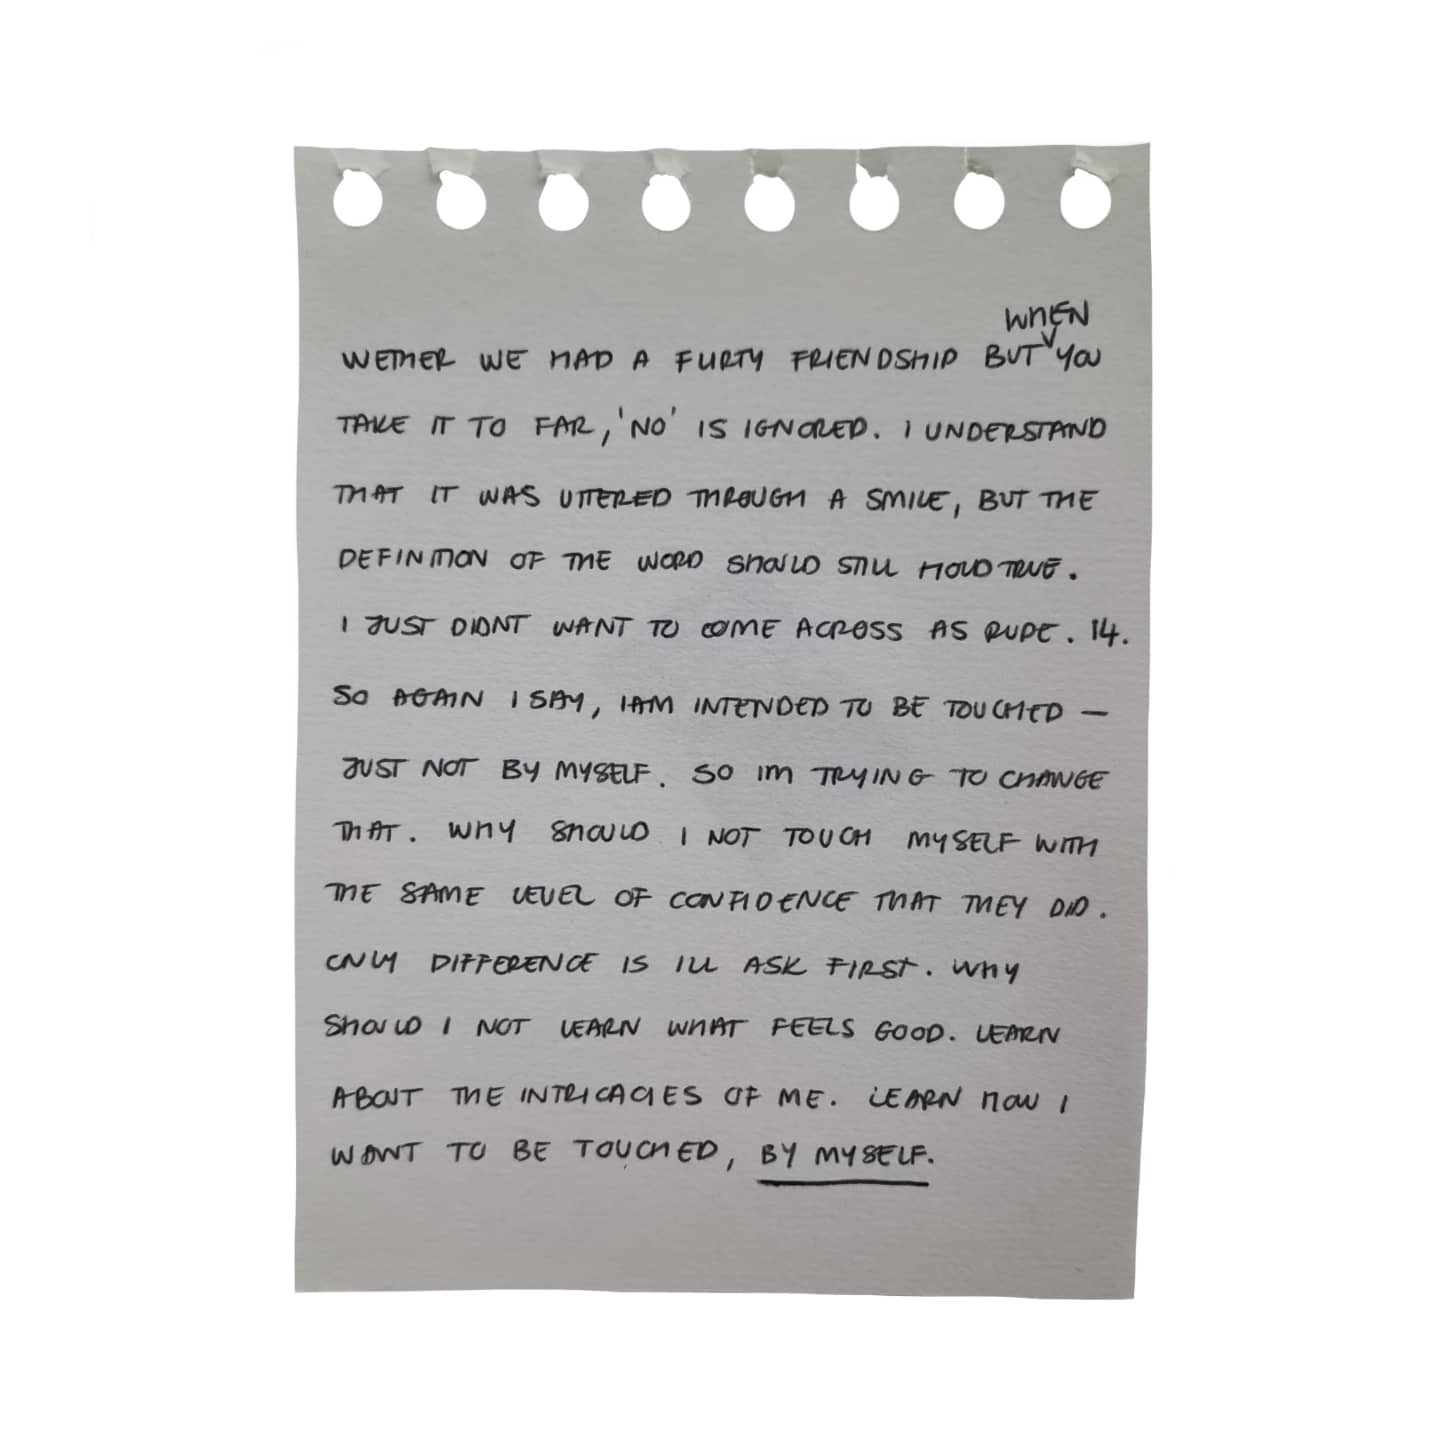 WHEN
WETHER WE HAD A FLIRTY FRIENDSHIP BUT YOU
TAKE IT TO FAR, 'NO' IS IGNORED. I UNDERSTAND
THAT IT WAS UTTERED THROUGH A SMILE, BUT THE
DEFINITION OF THE WORD SHOULD STILL HOLD TRUE.
I JUST DIDNT WANT TO COME ACROSS AS RUDE. 14.
SO AGAIN I SAY, I AM INTENDED TO BE TOUCHED —
JUST NOT BY MYSELF. SO IM TRYING TO CHANGE
THAT. WHY SHOULD I NOT TOUCH MYSELF WITH
THE SAME LEVEL OF CONFIDENCE THAT THEY DID.
ONLY DIFFERENCE IS ILL ASK FIRST. WHY
SHOULD I NOT LEARN WHAT FEELS GOOD. LEARN
ABOUT THE INTRICACIES OF ME. LEARN HOW I
WANT TO BE TOUCHED, BY MYSELF.